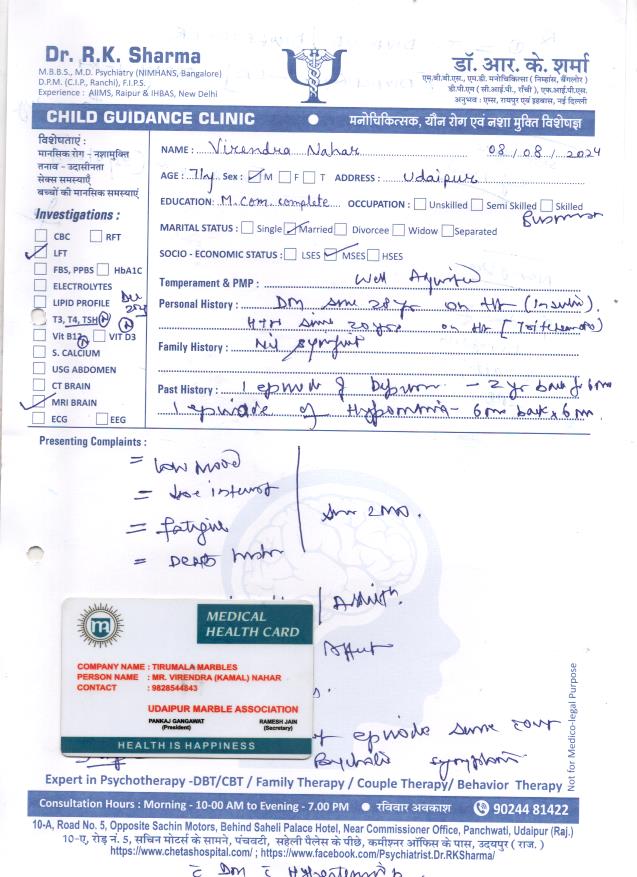 Dr. R.K. Sharma
M.B.B.S., M.D. Psychiatry (NIMHANS, Bangalore)
D.P.M. (C.I.P., Ranchi), F.I.P.S.
Experience : AIIMS, Raipur & IHBAS, New Delhi
डॉ. आर. के. शर्मा
एम.बी.बी.एस., एम.डी. मनोचिकित्सा ( निम्हांस, बैंगलोर )
डी.पी.एम ( सी.आई.पी., राँची ), एफ.आई.पी.एस.
अनुभव : एम्स, रायपुर एवं इहबास, नई दिल्ली
CHILD GUIDANCE CLINIC ● मनोचिकित्सक, यौन रोग एवं नशा मुक्ति विशेषज्ञ
विशेषताएं :
मानसिक रोग - नशामुक्ति
तनाव - उदासीनता
सेक्स समस्याएँ
बच्चों की मानसिक समस्याएं
Investigations :
CBC RFT
LFT
FBS, PPBS HbA1C
ELECTROLYTES
LIPID PROFILE
T3, T4, TSH N
Vit B12 N VIT D3 N
S. CALCIUM
USG ABDOMEN
CT BRAIN
MRI BRAIN
ECG EEG
NAME : Virendra Nahar 08/08/2024
AGE : 71y Sex : M F T ADDRESS : Udaipur
EDUCATION: M.Com. complete OCCUPATION : Unskilled Semi Skilled Skilled
MARITAL STATUS : Single Married Divorcee Widow Separated
SOCIO - ECONOMIC STATUS : LSES MSES HSES
Temperament & PMP : Well Adjusted
Personal History : DM since 28 yr on (Insulin)
HTN since 20 yrs on
Family History :
Past History : 1 episode of - 2 yr back
1 episode of Hypomania - 6 mo back x 6 m
Presenting Complaints :
= low mood
= interest
= fatigue
= Death
since 2 mo.
Affect
of episode same
symptom
MEDICAL
HEALTH CARD
COMPANY NAME : TIRUMALA MARBLES
PERSON NAME : MR. VIRENDRA (KAMAL) NAHAR
CONTACT : 9828544843
UDAIPUR MARBLE ASSOCIATION
PANKAJ GANGAWAT RAMESH JAIN
(President) (Secretary)
HEALTH IS HAPPINESS
Not for Medico-legal Purpose
Expert in Psychotherapy -DBT/CBT / Family Therapy / Couple Therapy/ Behavior Therapy
Consultation Hours : Morning - 10-00 AM to Evening - 7.00 PM ● रविवार अवकाश 90244 81422
10-A, Road No. 5, Opposite Sachin Motors, Behind Saheli Palace Hotel, Near Commissioner Office, Panchwati, Udaipur (Raj.)
10-ए, रोड़ नं. 5, सचिन मोटर्स के सामने, पंचवटी, सहेली पैलेस के पीछे, कमीश्नर ऑफिस के पास, उदयपुर ( राज. )
https://www.chetashospital.com/ ; https://www.facebook.com/Psychiatrist.Dr.RKSharma/